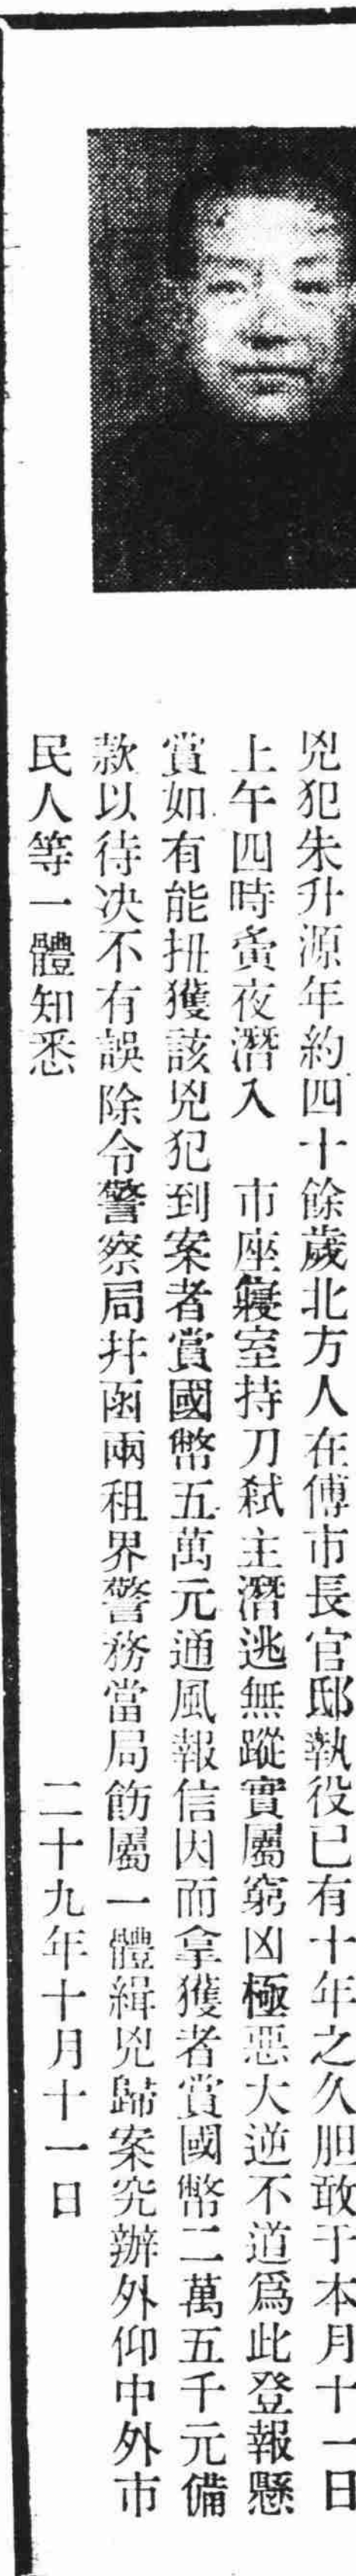 兇犯朱升源年約四十餘歲北方人在傅市長官邸執役已有十年之久胆敢于本月十一日
上午四時夤夜潛入　市座寢室持刀弒主潛逃無蹤實屬窮凶極惡大逆不道爲此登報懸
賞如有能扭獲該兇犯到案者賞國幣五萬元通風報信因而拿獲者賞國幣二萬五千元備
款以待决不有誤除令警察局幷函兩租界警務當局飭屬一體緝兇歸案究辦外仰中外市
民人等一體知悉
二十九年十月十一日